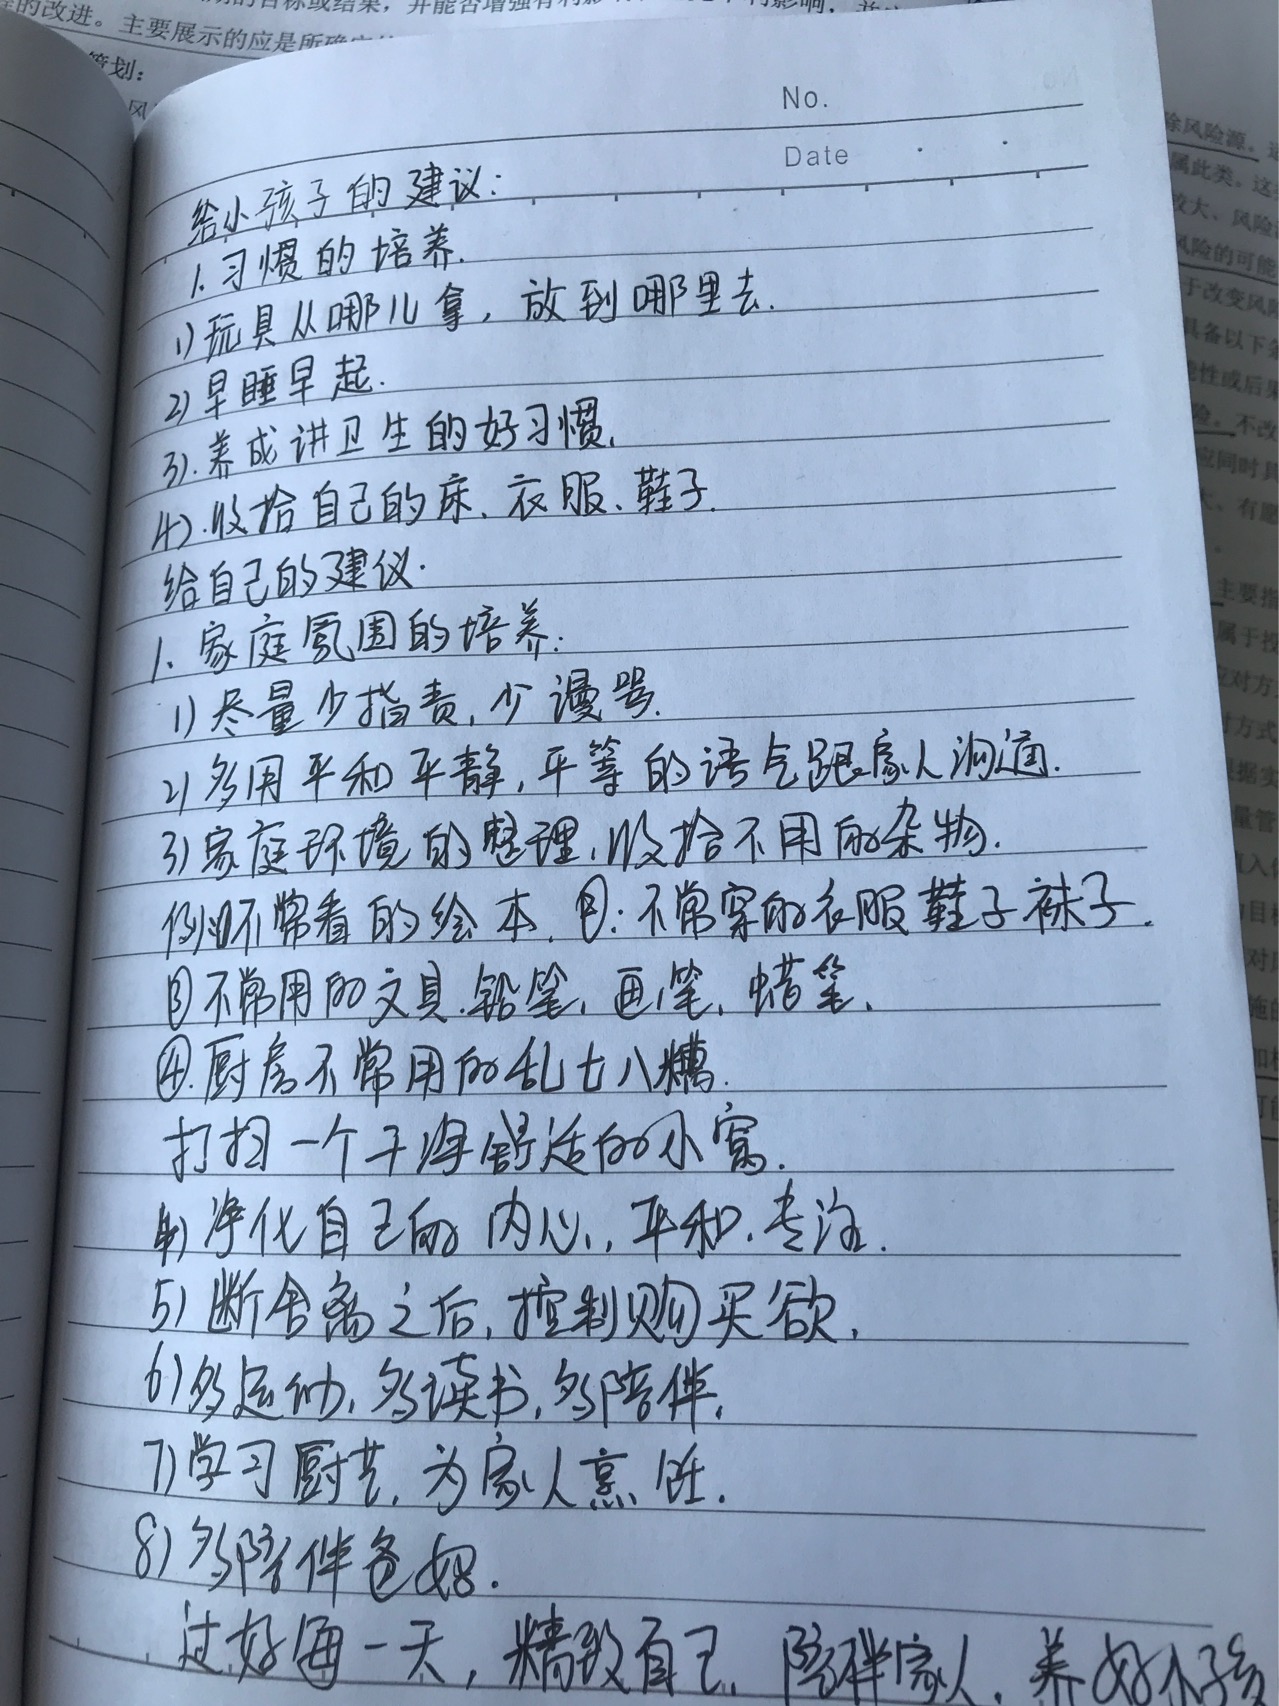 的改进。主要展示的应是所确定的
策划：
No.
Date
给小孩子的建议：
1.习惯的培养.
1)玩具从哪儿拿，放到哪里去.
2)早睡早起.
3).养成讲卫生的好习惯.
4).收拾自己的床、衣服、鞋子.
给自己的建议.
1、家庭氛围的培养.
1)尽量少指责，少谩骂.
2)多用平和平静，平等的语气跟家人沟通.
3)家庭环境的整理，收拾不用的杂物.
例①不常看的绘本、②.不常穿的衣服鞋子袜子.
③不常用的文具.铅笔，画笔，蜡笔，
④.厨房不常用的乱七八糟.
打扫一个干净舒适的小窝.
4)净化自己的内心，平和.专注.
5)断舍离之后，控制购买欲，
6)多运动，多读书，多陪伴，
7)学习厨艺，为家人烹饪.
8)多陪伴爸妈.
过好每一天，精致自己，陪伴家人，养好小孩
除风险源。
属此类。这
较大、风险
风险的可能
于改变风险
具备以下条
能性或后果
险。不改
应同时具
主要指
属于授
应对方
对方式
根据实
量管